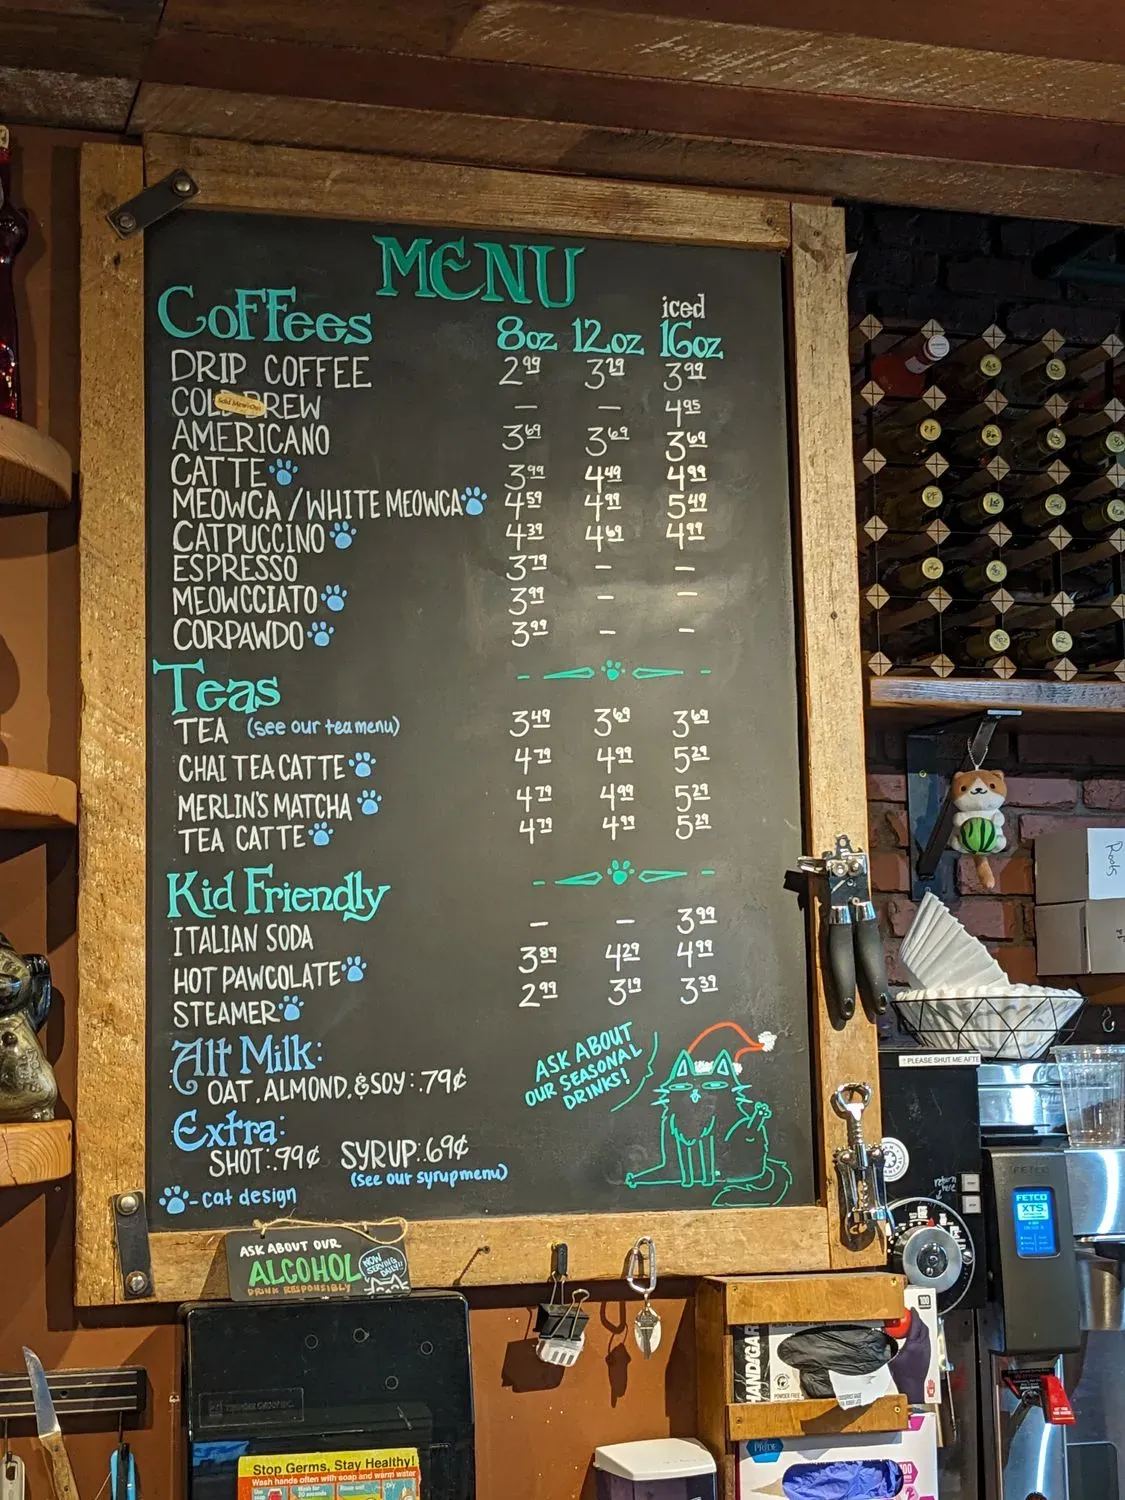 MENU
Coffees
iced
8oz 12oz 16oz
DRIP COFFEE 2.99 3.29 3.99
COLD BREW — 4.95
AMERICANO 3.69 3.69 3.69
CATTE 3.99 4.49 4.99
MEOWCA / WHITE MEOWCA 4.59 4.99 5.49
CATPUCCINO 4.39 4.69 4.99
ESPRESSO 3.79 — —
MEOWCCIATO 3.99 — —
CORPAWDO 3.99 — —
Teas
TEA (see our tea menu) 3.49 3.69 3.69
CHAI TEA CATTE 4.79 4.99 5.29
MERLIN'S MATCHA 4.79 4.99 5.29
TEA CATTE 4.79 4.99 5.29
Kid Friendly
ITALIAN SODA — — 3.99
HOT PAWCOLATE 3.89 4.29 4.99
STEAMER 2.99 3.19 3.39
Alt Milk:
OAT, ALMOND, & SOY: .79¢
Extra:
SHOT: .99¢ SYRUP: .69¢
(see our syrup menu)
- cat design
ASK ABOUT
OUR SEASONAL
DRINKS!
ASK ABOUT OUR
ALCOHOL
NOW
SERVING
DAILY!!
DRINK RESPONSIBLY
Stop Germs, Stay Healthy!
Wash hands often with soap and warm water
PLEASE SHUT ME AFTE
return
here
FETCO
XTS
HAND/GAR
POWDER FREE
100
PRIDE